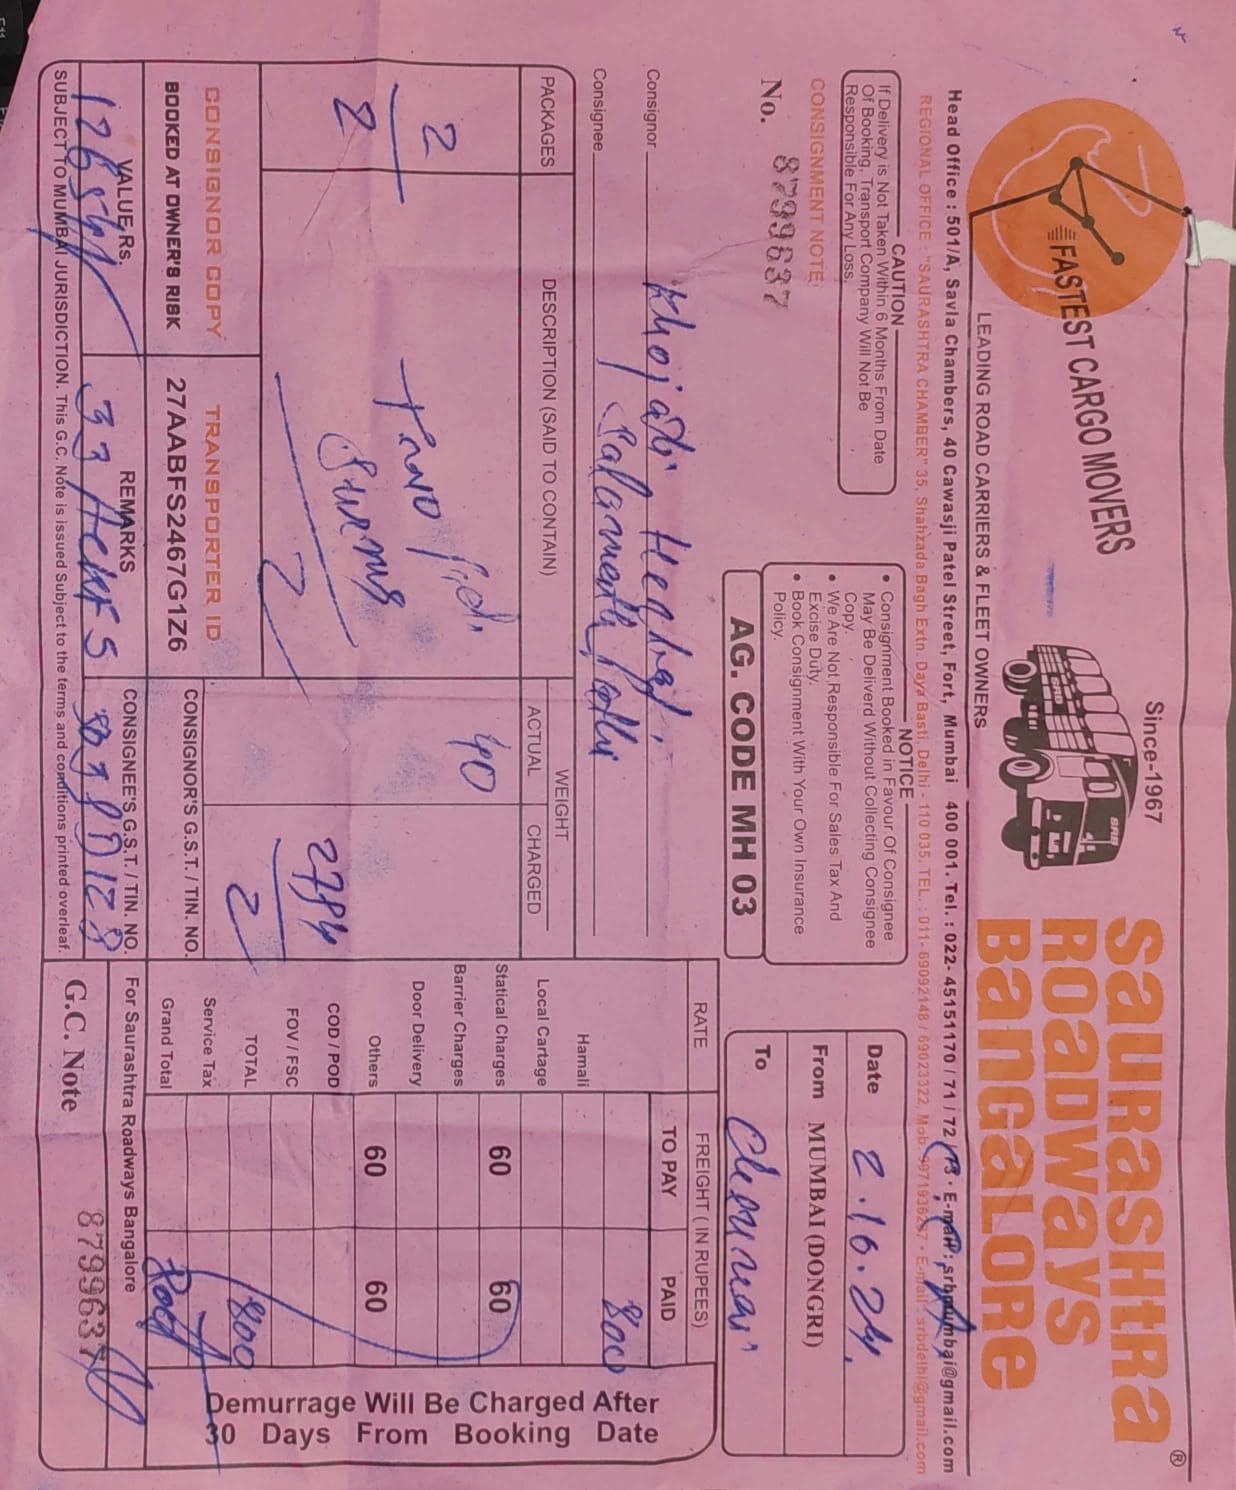 FASTEST CARGO MOVERS
Since-1967
SRB
SRB
SAURASHTRA ®
ROADWAYS
BANGALORE
LEADING ROAD CARRIERS & FLEET OWNERS
Head Office : 501/A, Savla Chambers, 40 Cawasji Patel Street, Fort, Mumbai 400 001. Tel. : 022- 45151170 / 71 / 72 / 73 • E-mail : srbmumbai@gmail.com
REGIONAL OFFICE "SAURASHTRA CHAMBER" 35, Shahzada Bagh Extn. Daya Basti, Delhi - 110 035. TEL. : 011- 69092148 / 69023322, Mob. • E-mail : srbdelhi@gmail.com
CAUTION
If Delivery is Not Taken Within 6 Months From Date
Of Booking, Transport Company Will Not Be
Responsible For Any Loss.
NOTICE
• Consignment Booked in Favour Of Consignee
May Be Deliverd Without Collecting Consignee
Copy.
• We Are Not Responsible For Sales Tax And
Excise Duty.
• Book Consignment With Your Own Insurance
Policy.
Date 2.10.24.
From MUMBAI (DONGRI)
To Chennai
CONSIGNMENT NOTE
No. 8799637
AG. CODE MH 03
Consignor
Consignee
PACKAGES
DESCRIPTION (SAID TO CONTAIN)
WEIGHT
ACTUAL
CHARGED
RATE
FREIGHT ( IN RUPEES)
TO PAY
PAID
2
40
2
800
Hamali
Local Cartage
Statical Charges 60 60
Barrier Charges
Door Delivery
Others 60 60
COD / POD
FOV / FSC
TOTAL 800
Service Tax
Grand Total
Demurrage Will Be Charged After
30 Days From Booking Date
CONSIGNOR COPY
TRANSPORTER ID
BOOKED AT OWNER'S RISK
27AABFS2467G1Z6
CONSIGNOR'S G.S.T. / TIN. NO.
VALUE Rs.
REMARKS
CONSIGNEE'S G.S.T. / TIN. NO.
For Saurashtra Roadways Bangalore
G.C. Note 8799637
SUBJECT TO MUMBAI JURISDICTION. This G.C. Note is issued Subject to the terms and conditions printed overleaf.